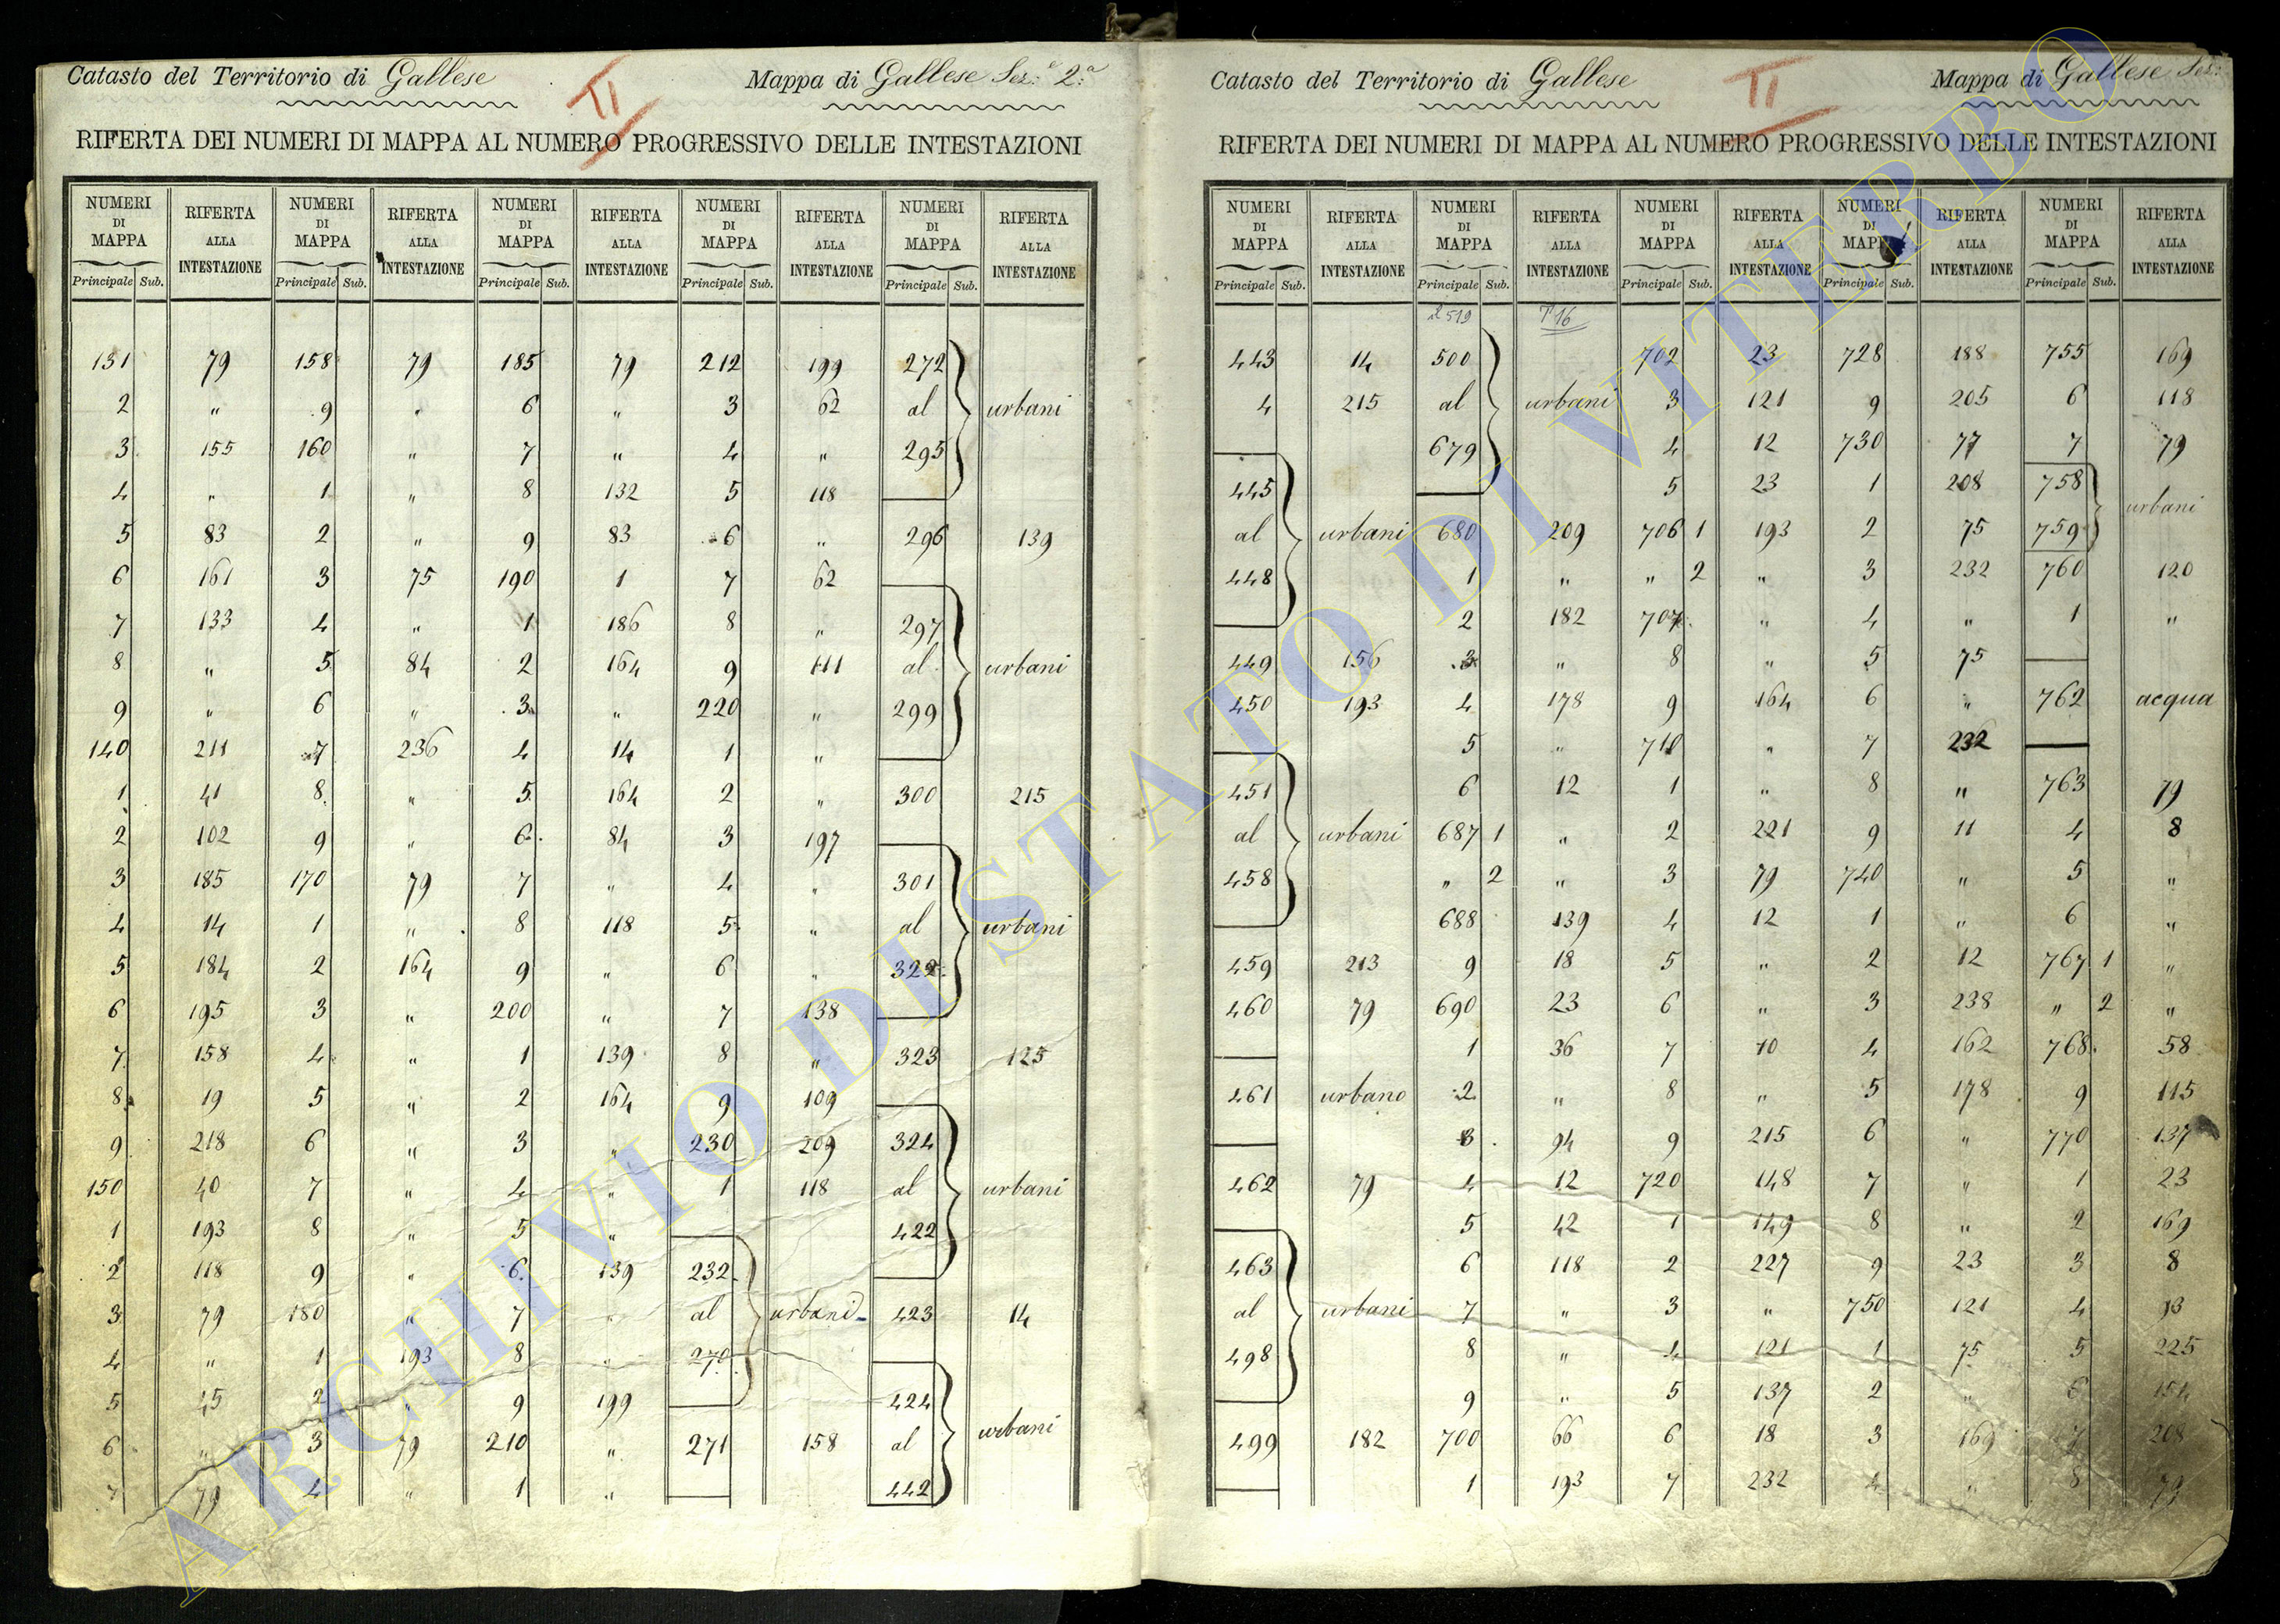 Catasto del Territorio di Gallese
II
Mappa di Gallese Sez.e 2.a
RIFERTA DEI NUMERI DI MAPPA AL NUMERO PROGRESSIVO DELLE INTESTAZIONI
NUMERI DI MAPPA RIFERTA ALLA INTESTAZIONE NUMERI DI MAPPA RIFERTA ALLA INTESTAZIONE NUMERI DI MAPPA RIFERTA ALLA INTESTAZIONE NUMERI DI MAPPA RIFERTA ALLA INTESTAZIONE NUMERI DI MAPPA RIFERTA ALLA INTESTAZIONE
Principale Sub. Principale Sub. Principale Sub. Principale Sub. Principale Sub.
131 79 158 79 185 79 212 199 272
2 " 9 " 6 " 3 62 al urbani
3 155 160 " 7 " 4 " 295
4 " 1 " 8 132 5 118
5 83 2 " 9 83 6 " 296 139
6 161 3 75 190 1 7 62
7 133 4 " 1 186 8 " 297
8 " 5 84 2 164 9 111 al urbani
9 " 6 " 3 " 220 " 299
140 211 7 236 4 14 1 "
1 41 8 " 5 164 2 " 300 215
2 102 9 " 6 84 3 197
3 185 170 79 7 " 4 " 301
4 14 1 " 8 118 5 " al urbani
5 184 2 164 9 " 6 " 322
6 195 3 " 200 " 7 138
7 158 4 " 1 139 8 " 323 125
8 19 5 " 2 164 9 109
9 218 6 " 3 " 230 209 324
150 40 7 " 4 " 1 118 al urbani
1 193 8 " 5 " 422
2 118 9 " 6 139 232
3 79 180 " 7 " al urbani 423 14
4 " 1 193 8 " 270
5 45 2 " 9 199 424
6 " 3 79 210 " 271 158 al urbani
7 79 4 " 1 " 442
Catasto del Territorio di Gallese
II
Mappa di Gallese Sez.
RIFERTA DEI NUMERI DI MAPPA AL NUMERO PROGRESSIVO DELLE INTESTAZIONI
NUMERI DI MAPPA RIFERTA ALLA INTESTAZIONE NUMERI DI MAPPA RIFERTA ALLA INTESTAZIONE NUMERI DI MAPPA RIFERTA ALLA INTESTAZIONE NUMERI DI MAPPA RIFERTA ALLA INTESTAZIONE NUMERI DI MAPPA RIFERTA ALLA INTESTAZIONE
Principale Sub. Principale Sub. Principale Sub. Principale Sub. Principale Sub.
519 T 16
443 14 500 702 23 728 188 755 169
4 215 al urbani 3 121 9 205 6 118
679 4 12 730 77 7 79
445 5 23 1 208 758 urbani
al urbani 680 209 706 1 193 2 75 759
448 1 " " 2 " 3 232 760 120
2 182 707 " 4 " 1 "
449 156 3 " 8 " 5 75
450 193 4 178 9 164 6 " 762 acqua
5 " 710 " 7 232
451 6 12 1 " 8 " 763 79
al urbani 687 1 " 2 221 9 11 4 8
458 " 2 " 3 79 740 " 5 "
688 139 4 12 1 " 6 "
459 213 9 18 5 " 2 12 767 1 "
460 79 690 23 6 " 3 238 " 2 "
1 36 7 10 4 162 768 58
461 urbano 2 " 8 " 5 178 9 115
3 94 9 215 6 " 770 137
462 79 4 12 720 148 7 " 1 23
5 42 1 149 8 " 2 169
463 6 118 2 227 9 23 3 8
al urbani 7 " 3 " 750 121 4 93
498 8 " 4 121 1 75 5 225
9 " 5 137 2 " 6 154
499 182 700 66 6 18 3 169 7 208
1 193 7 232 4 " 8 79
ARCHIVIO DI STATO DI VITERBO